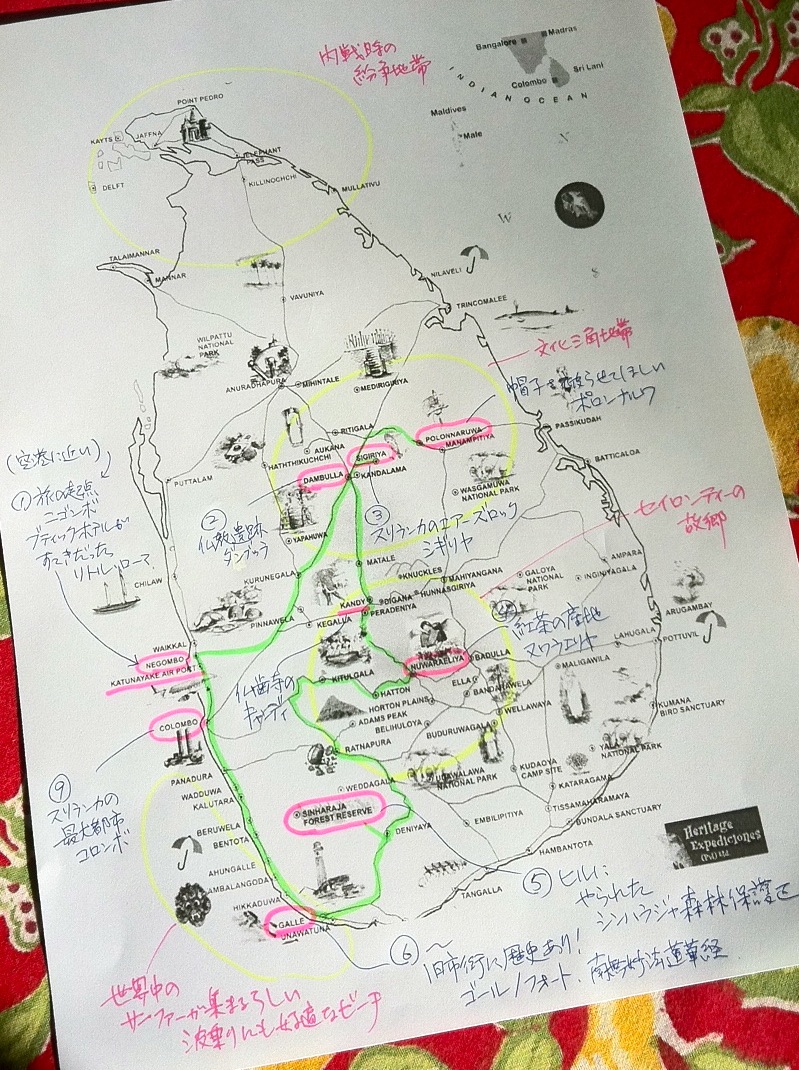 内戦時の
紛争地帯
Bangalore
Madras
Colombo
Sri Lan
INDIAN OCEAN
Maldives
Male
N
W
S
POINT PEDRO
KAYTS
JAFFNA
ELEPHANT
PASS
DELFT
KILLINOCHCHI
MULLATIVU
TALAIMANNAR
MANNAR
NILAVELI
VAVUNIYA
TRINCOMALEE
WILPATTU
NATIONAL
PARK
文化三角地帯
ANURADHAPURA
MIHINTALE
MEDIRIGIRIYA
帽子を被らせてほしい
ポロンナルワ
RITIGALA
POLONNARUWA
MANAMPITIYA
PASSIKUDAH
AUKANA
SIGIRIYA
(空港に近い)
HATHTHIKUCHCHI
BATTICALOA
PUTTALAM
DAMBULLA
KANDALAMA
WASGAMUWA
NATIONAL PARK
①旅の起点
ニゴンボ
ブティックホテルが
すてきだった
リトル・ローマ
②
仏教遺跡
ダンブッラ
③
スリランカのエアーズロック
シギリヤ
セイロンティーの
故郷
YAPAHUWA
MATALE
AMPARA
KURUNEGALA
KNUCKLES
MAHIYANGANA
GALOYA
NATIONAL
PARK
INGINIYAGALA
CHILAW
DIGANA
HUNNASGIRIYA
KANDY
PERADENIYA
PINNAWELA
KEGALLA
ARUGAMBAY
④紅茶の産地
ヌワラエリヤ
LAHUGALA
POTTUVIL
WAIKKAL
NEGOMBO
KATUNAYAKE AIR PORT
NUWARAELIYA
BADULLA
MALIGAWILA
仏歯寺の
キャンディ
KITULGALA
HATTON
ELLA
BANDARAWELA
HORTON PLAINS
ADAMS PEAK
WELLAWAYA
KUMANA
BIRD SANCTUARY
COLOMBO
BELIHULOYA
BUDURUWAGALA
RATNAPURA
YALA
NATIONAL PARK
⑨
スリランカの
最大都市
コロンボ
PANADURA
UDAWALAWA
NATIONAL PARK
KUDAOYA
CAMP SITE
WEDDAGALA
KATARAGAMA
WADDUWA
KALUTARA
SINHARAJA
FOREST RESERVE
TISSAMAHARAMAYA
EMBILIPITIYA
BUNDALA SANCTUARY
BERUWELA
BENTOTA
DENIYAYA
Heritage
Expediciones
(Pvt) Ltd
HAMBANTOTA
AHUNGALLE
AMBALANGODA
TANGALLA
⑤ヒルに
やられた
シンハラジャ森林保護区
HIKKADUWA
GALLE
UNAWATUNA
⑥～
旧市街に歴史あり!
ゴール/フォート、南無妙法蓮華経
世界中の
サーファーが集まるらしい
波乗りにも好適なビーチ